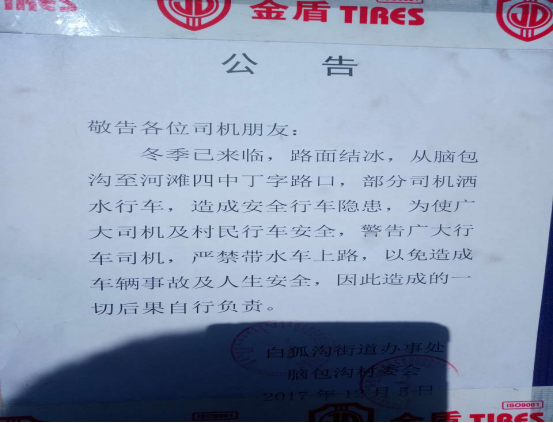 TIRES
金盾 TIRES
ISO9001
公 告
敬告各位司机朋友：
冬季已来临，路面结冰，从脑包
沟至河滩四中丁字路口，部分司机洒
水行车，造成安全行车隐患，为使广
大司机及村民行车安全，警告广大行
车司机，严禁带水车上路，以免造成
车辆事故及人生安全，因此造成的一
切后果自行负责。
白狐沟街道办事处
脑包沟村委会
2017 年 12 月 5 日
ISO9001
金盾 TIRES